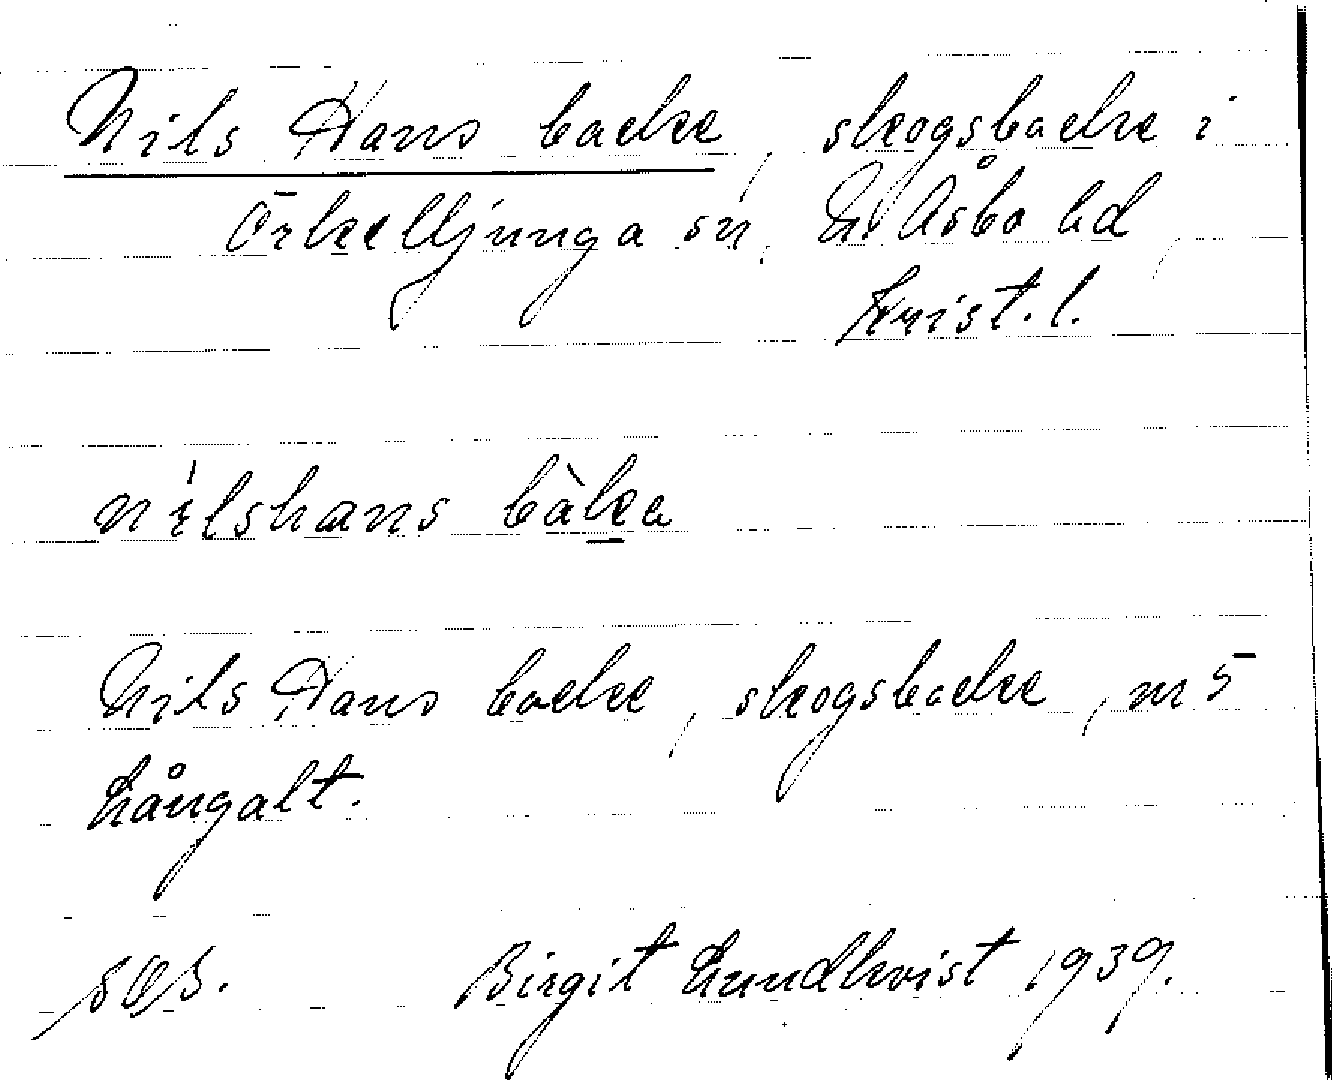 Nils Hans backe, skogsbacke i
Örkelljunga sn, N. Åsbo hd,
Krist. l.
nilshans bàka
Nils Hans backe, skogsbacke, n s
Långalt.
SOS. Birgit Lundkvist 1939.